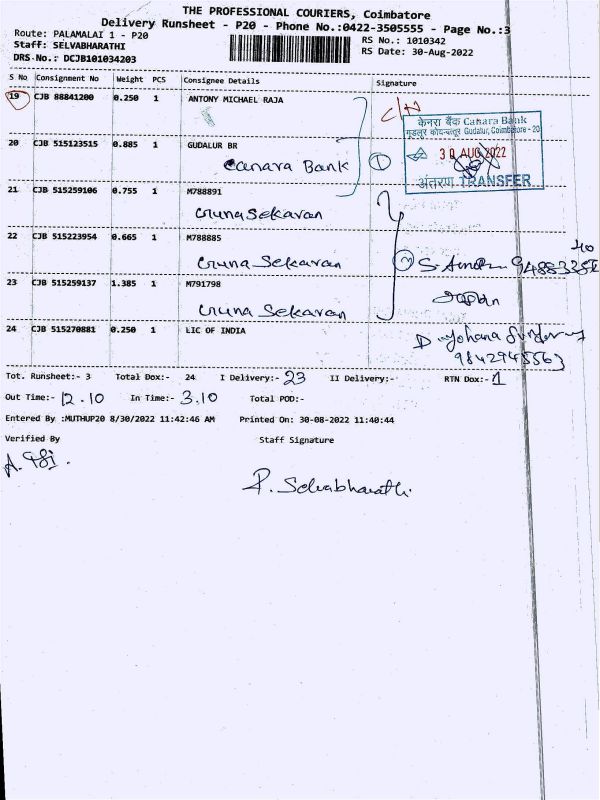 THE PROFESSIONAL COURIERS, Coimbatore
Delivery Runsheet - P20 - Phone No.:0422-3505555 - Page No.:3
Route: PALAMALAI 1 - P20
RS No.: 1010342
Staff: SELVABHARATHI
RS Date: 30-Aug-2022
DRS No.: DCJB101034203
S No Consignment No Weight PCS Consignee Details Signature
19 CJB 88841200 0.250 1 ANTONY MICHAEL RAJA
केनरा बैंक Canara Bank
गूडलूर कोयम्बतूर Gudalur, Coimbatore - 20
30 AUG 2022
अंतरण TRANSFER
20 CJB 515123515 0.885 1 GUDALUR BR
Canara Bank 1
21 CJB 515259106 0.755 1 M788891
Guna Sekaran
22 CJB 515223954 0.665 1 M788885
Guna Sekaran
23 CJB 515259137 1.385 1 M791798
Guna Sekaran
24 CJB 515270881 0.250 1 LIC OF INDIA
Tot. Runsheet:- 3 Total Dox:- 24 I Delivery:- 23 II Delivery:- RTN Dox:- 1
Out Time:- 12.10 In Time:- 3.10 Total POD:-
Entered By :MUTHUP20 8/30/2022 11:42:46 AM Printed On: 30-08-2022 11:40:44
Verified By Staff Signature
P. Selvabharathi